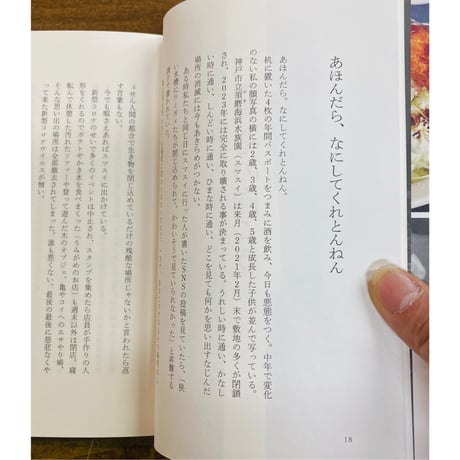 あほんだら、なにしてくれとんねん
あほんだら。なにしてくれとんねん。
机に置いた4枚の年間パスポートをつまみに酒を飲み、今日も悪態をつく。中年で変化
のない私の顔写真の横には2歳、3歳、4歳、5歳と成長した子供が並んで写っている。
神戸市立須磨海浜水族園（スマスイ）は来月（2021年2月）末で敷地の多くが閉鎖
され、2023年には完全に取り壊される事が決まっている。うれしい時に通い、かなし
い時に通い、しんどい時に通い、ひまな時に通い、どこを見ても何かを思い出すなじんだ
場所の消滅には今もあきらめがつかない。
ある時私たちと同じ日にスマスイに行った人が書いたSNSの投稿に、「狭
い水槽にサーガイたちが閉じ込められて、かわいそうで見ていられなかった」と非難する
せん人間の都合で生き物を閉じ込めているだけの残酷な場所じゃないかと言われたら返
す言葉もない。
今でも暇さえあればスマスイに出かけている。
新型コロナのせいで多くのイベントは中止され、スタンプを集めたら店員が手作りの人
形をくれるのでポテトやかき氷を食べまくった「うみがめのお店」も週末以外は閉店。寝
転んで休憩した汚れたソファーや登って遊んだ木のオブジェ、亀やコイへのエサやり場、
そんな思い出の場所は全部撤去されてしまった。誰も悪くない。最後の最後に慈悲なくや
って来た新型コロナウイルスが憎い。
18